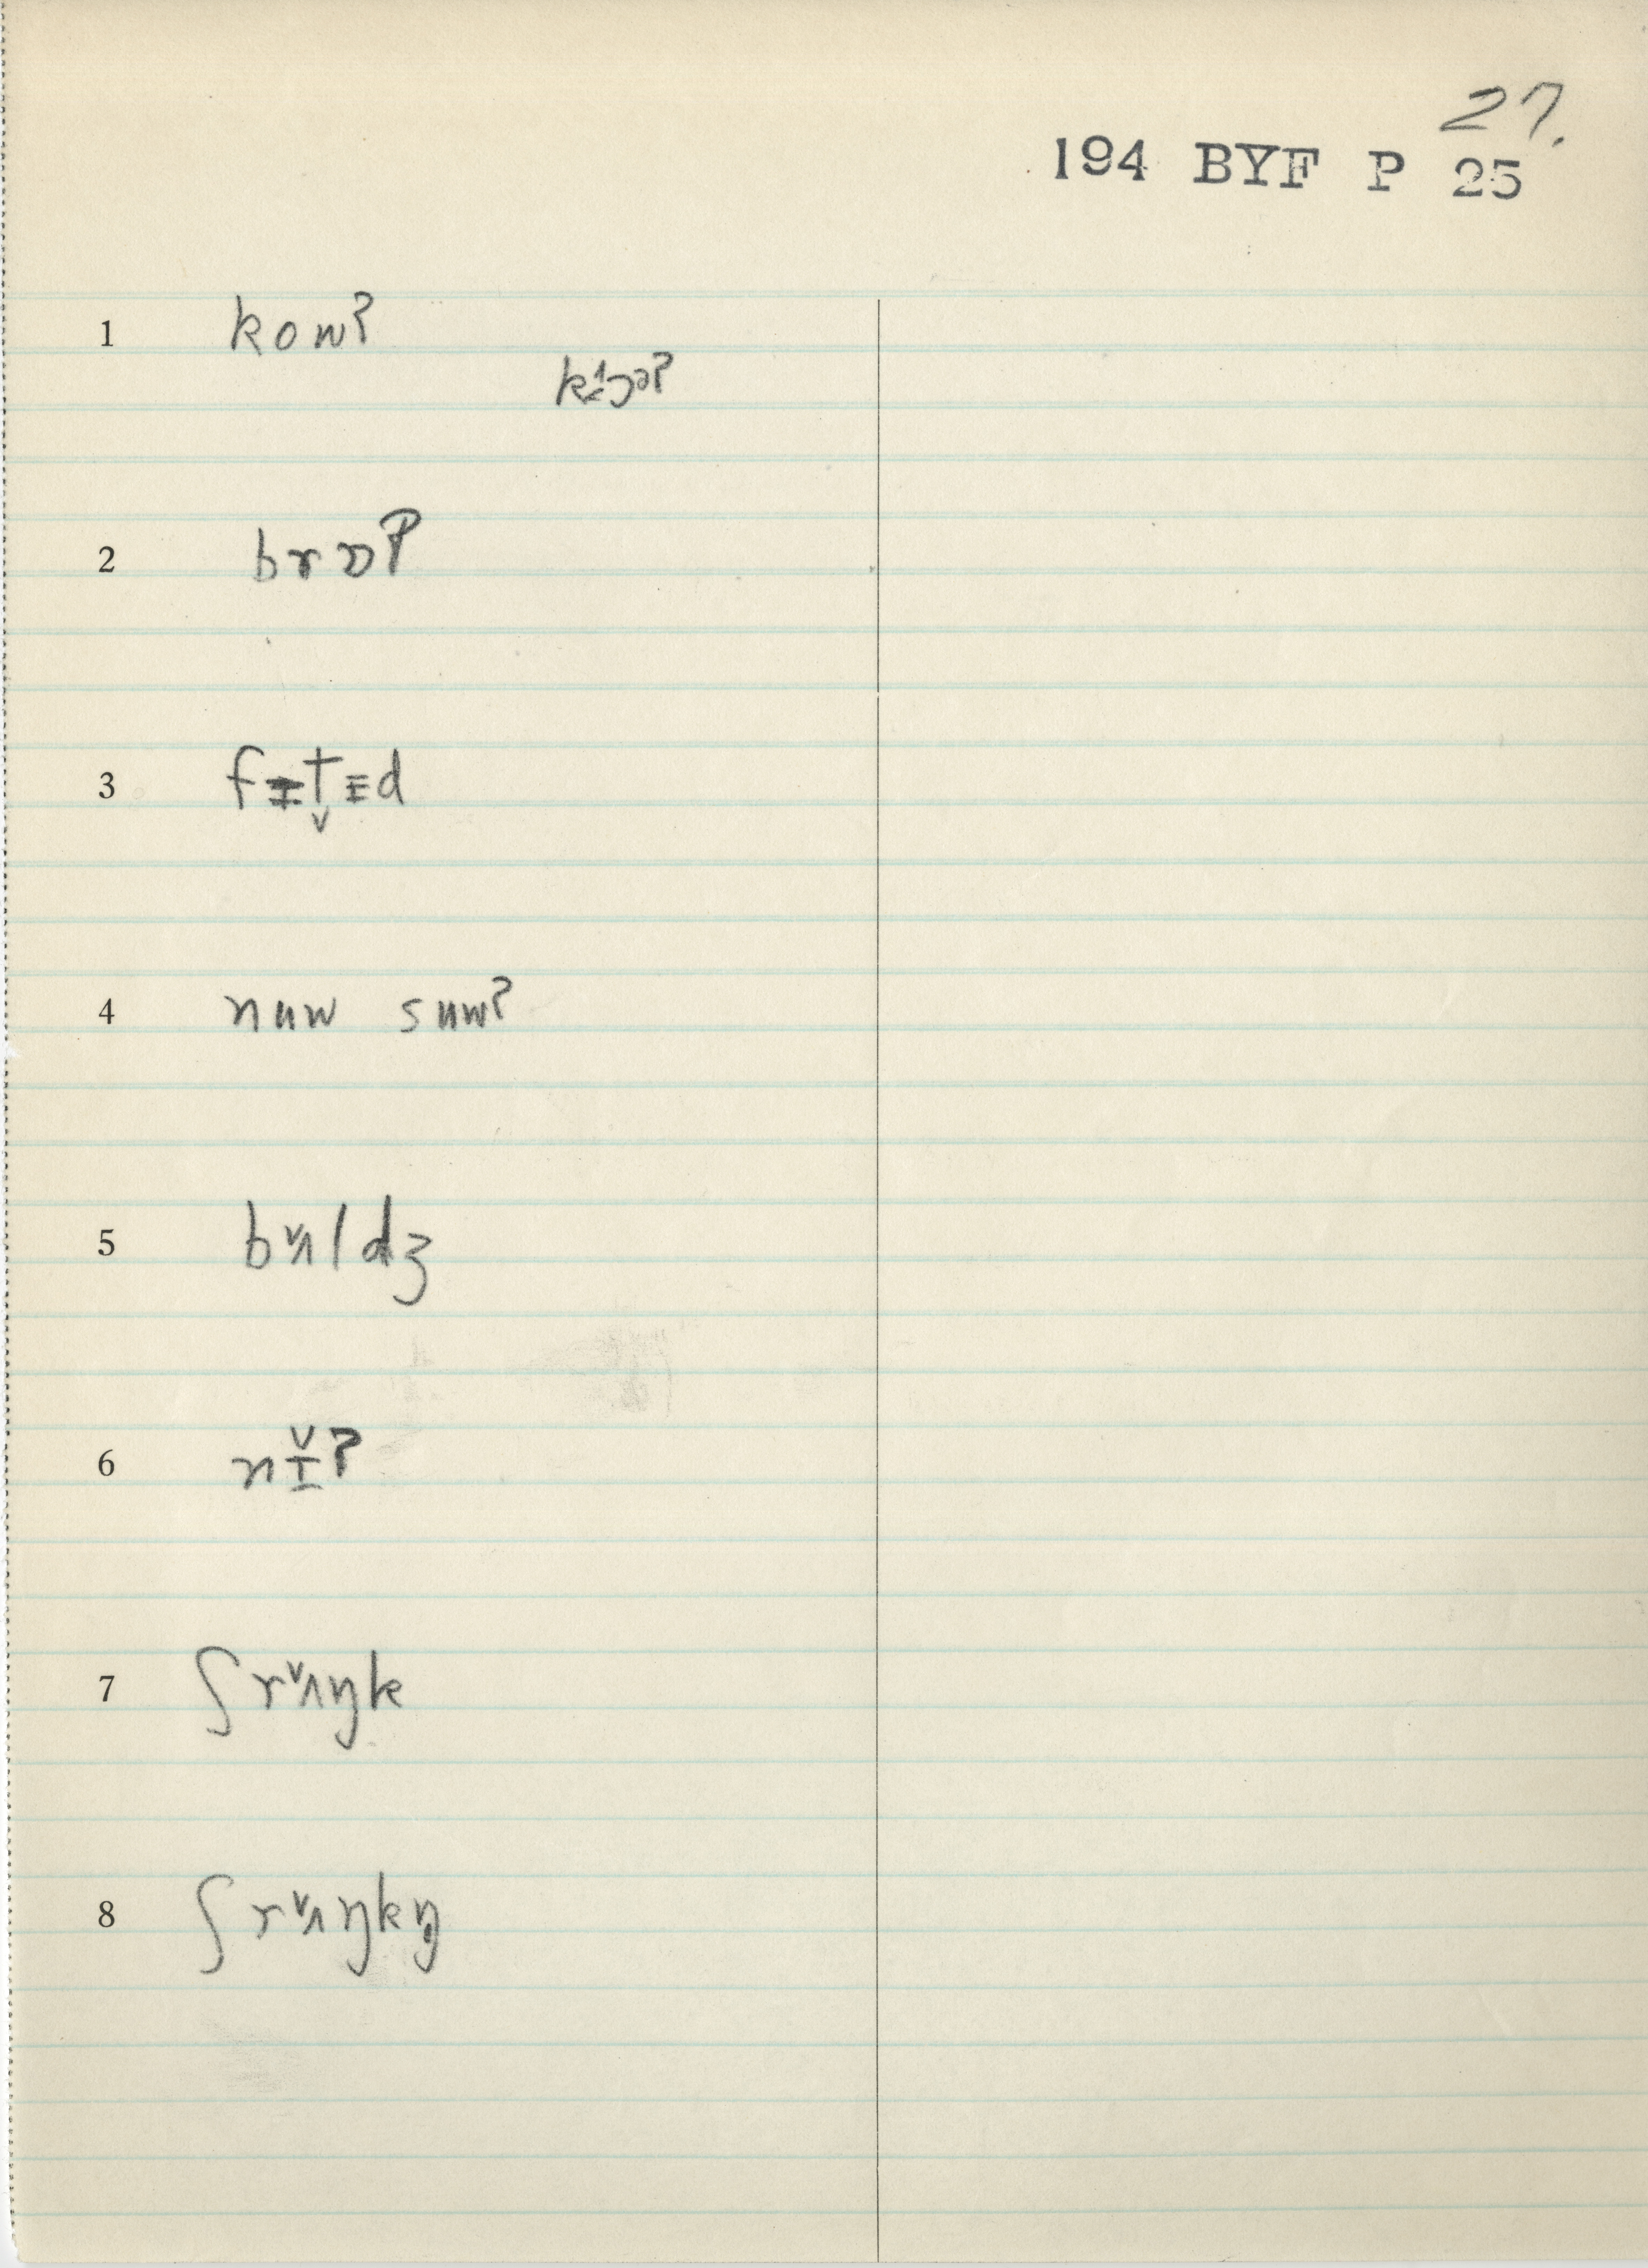 27.
194 BYF P 25
1 kowʔ
2 brɒʔ
3 fɪt̬ɪd
4 nuw suwʔ
5 bʌ̌ldʒ
6 nɪ̌ʔ
7 ʃrʌ̌ŋk
8 ʃrʌ̌ŋkŋ̩